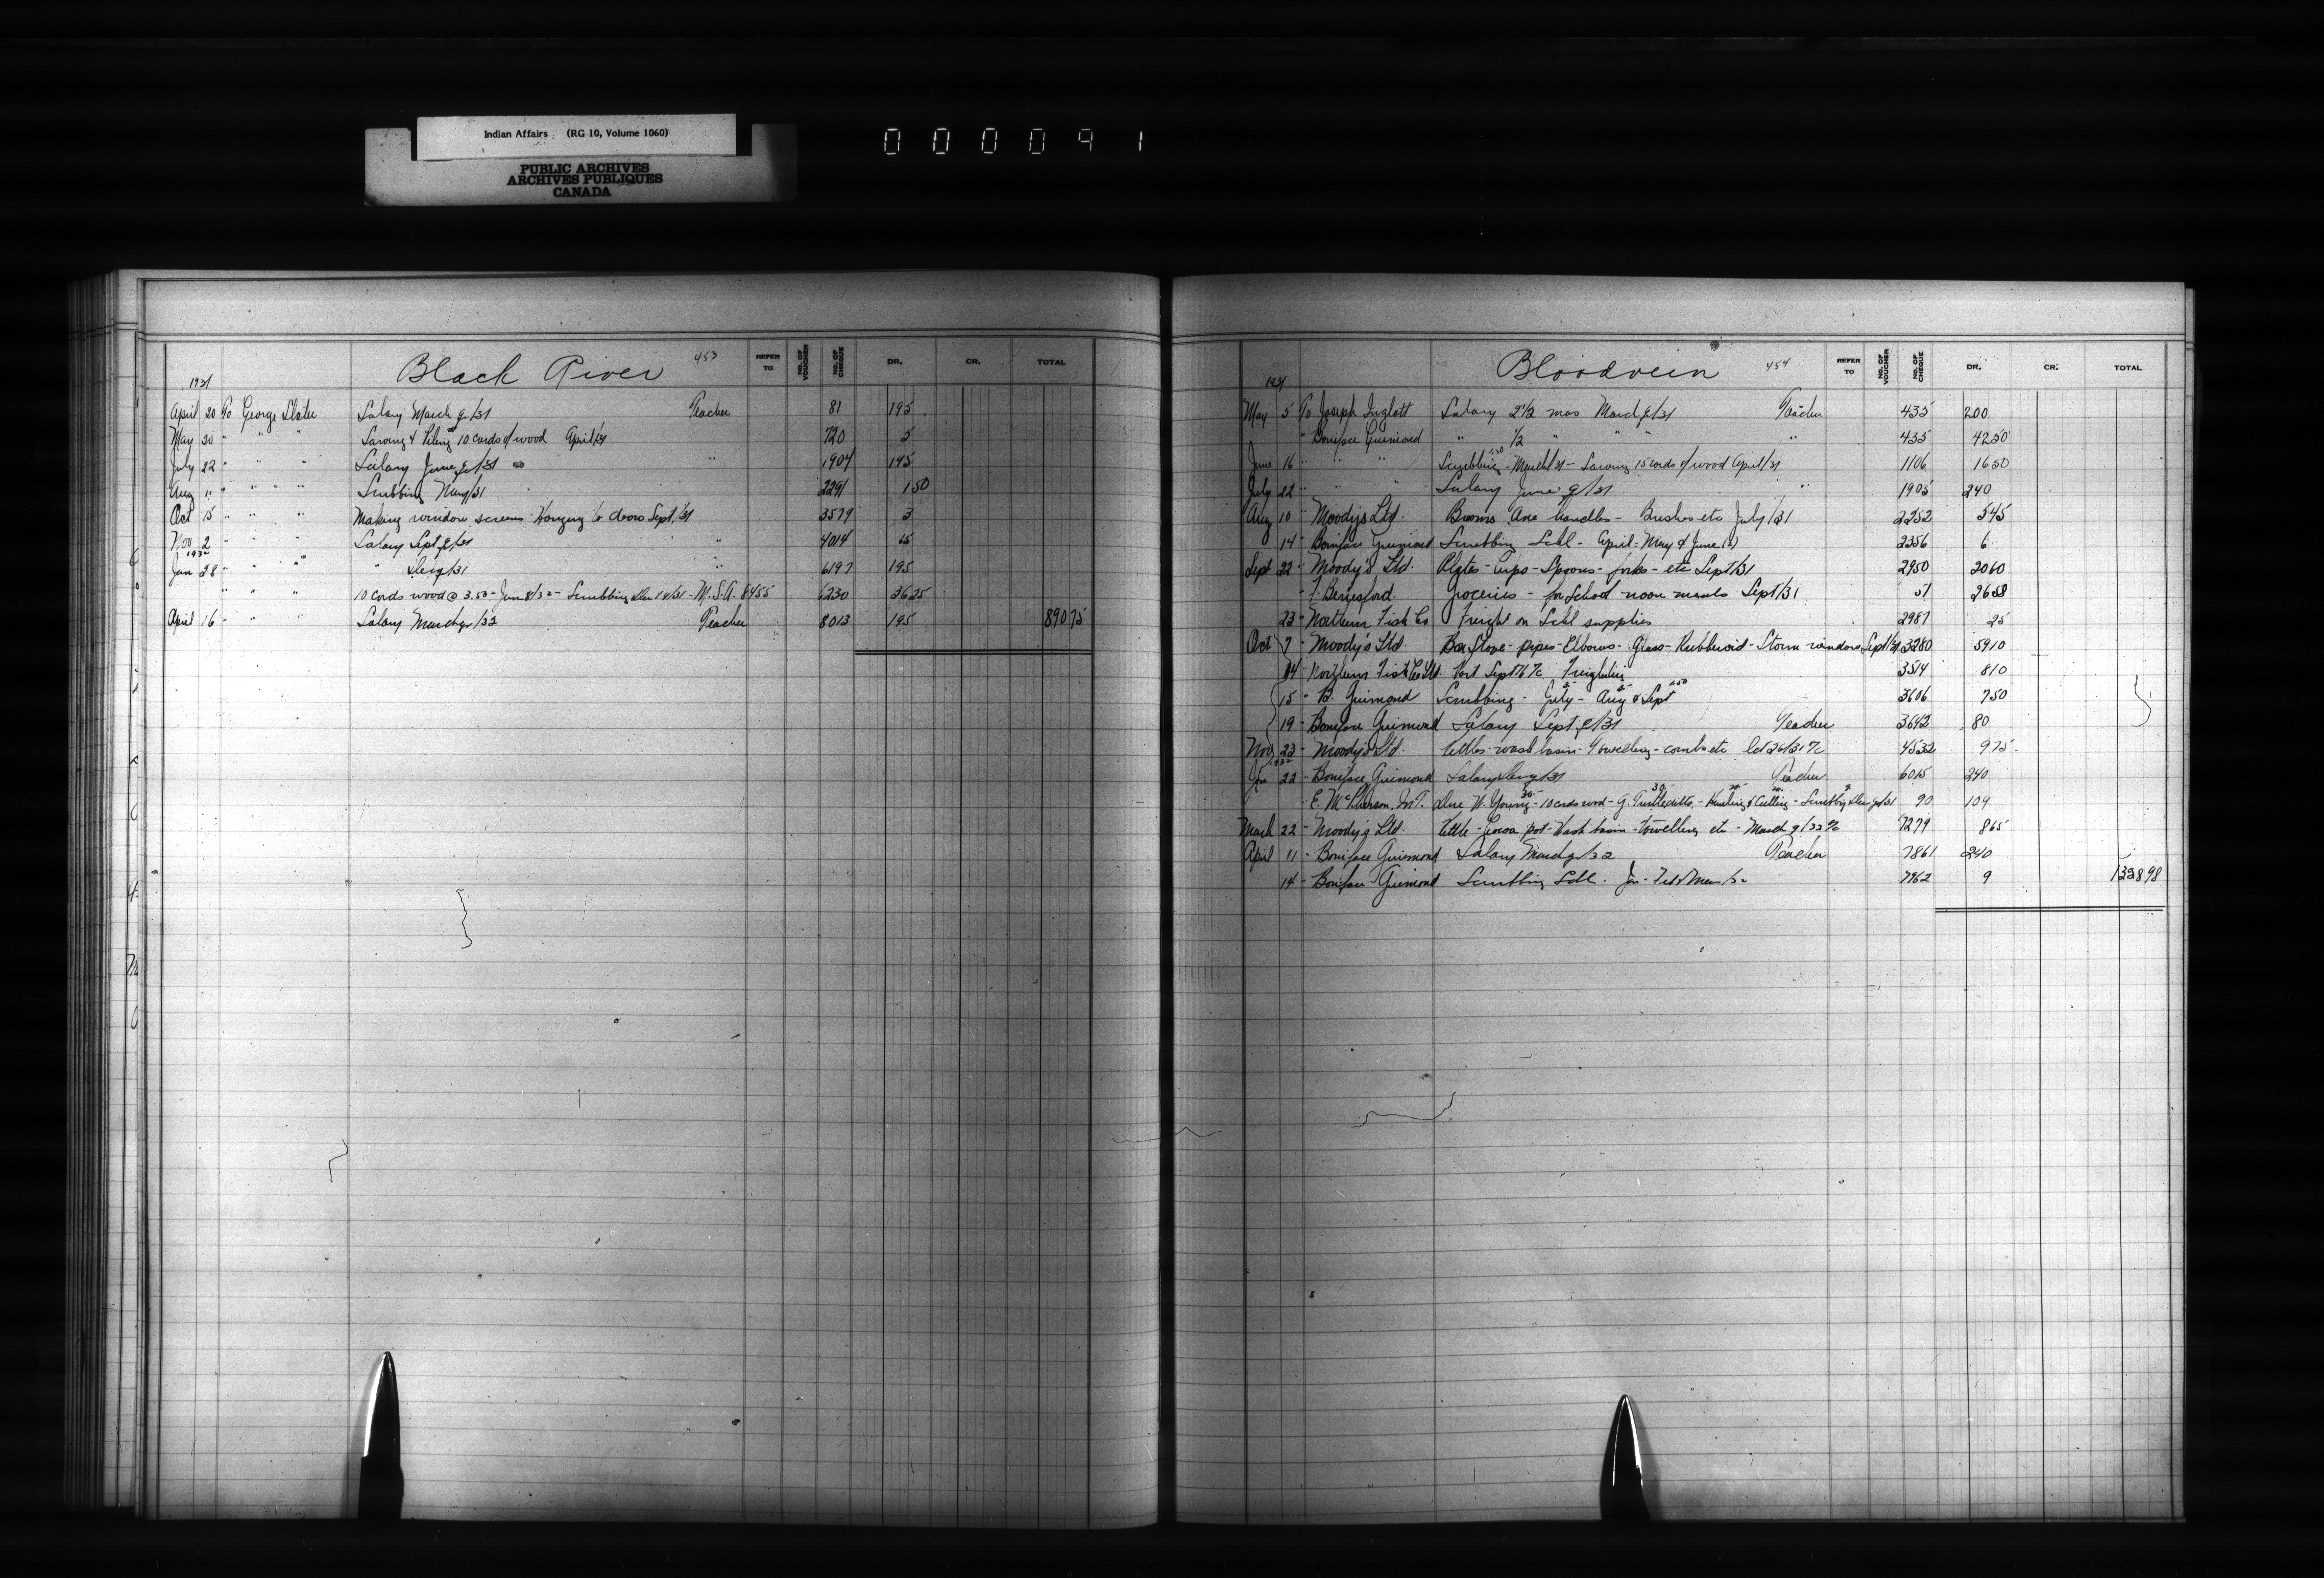 Indian Affairs (RG 10, Volume 1060)
PUBLIC ARCHIVES
ARCHIVES PUBLIQUES
CANADA
000091
Black River 453
REFER TO NO. OF VOUCHER NO. OF CHEQUE DR. CR. TOTAL
1931
April 20 To George Slater Salary March q/31 Teacher 81 195
May 20 " " " Sawing & Piling 10 cords of wood April/31 720 5
July 22 " " " Salary June q/31 " 1904 195
Aug 11 " " " Scrubbing May/31 2291 1 50
Oct 15 " " " Making window screens - Hanging doors Sept/31 3579 3
Nov 2 " " " Salary Sept q/31 " 4014 65
1932
Jan 28 " " " " Dec q/31 " 6197 195
" " " 10 cords wood @ 3.50 - Jan 8/32 - Scrubbing Dec 14/31 - M.S.A. 8455 6230 36 25
April 16 " " " Salary March qr/32 Teacher 8013 195 890 75
Bloodvein 454
REFER TO NO. OF VOUCHER NO. OF CHEQUE DR. CR. TOTAL
1931
May 5 To Joseph Inglott Salary 2 1/2 mos March q/31 Teacher 435 200
" Boniface Guimond " 1/2 " " " " 435 42 50
June 16 " " " Scrubbing 1.50 - March/31 - Sawing 15 cords of wood April/31 1106 16 50
July 22 " " " Salary June q/31 " 1905 240
Aug 10 - Moody's Ltd. Brooms Axe handles - Brushes etc July/31 2252 5 45
14 - Boniface Guimond Scrubbing Schl - April - May & June 2356 6
Sept 22 - Moody's Ltd. Plates - Cups - Spoons - forks - etc Sept/31 2950 20 60
- F. Berresford. Groceries - for School noon meals Sept/31 51 26 58
23 - Northern Fish Co Freight on Schl supplies 2987 25
Oct 7 - Moody's Ltd. Box Stove - pipes - Elbows - Glass - Rubberoid - Storm windows Sept/31 3280 59 10
14 - Northern Fish Co Ltd. Sept 16 Freighting 3514 8 10
15 - B. Guimond Scrubbing - July - Aug & Sept 3606 7 50
19 - Boniface Guimond Salary Sept q/31 Teacher 3642 80
Nov 23 - Moody's Ltd. Kettles - wash basin - Towelling - combs etc Oct 26/31 4532 9 75
1932
Jan 22 - Boniface Guimond Salary Dec q/31 Teacher 6015 240
E. McPherson, In T. Due W. Young - 10 cords wood - G. Turtle ditto - Hauling & Cutting - Scrubbing Dec q/31 90 109
March 22 - Moody's Ltd. Kettle - Cocoa pot - Wash basin - towelling etc - March q/32 7279 8 65
April 11 - Boniface Guimond Salary March qr/32 Teacher 7861 240
14 - Boniface Guimond Scrubbing Schl. Jan - Feb & Mar/32 7962 9 1328 98